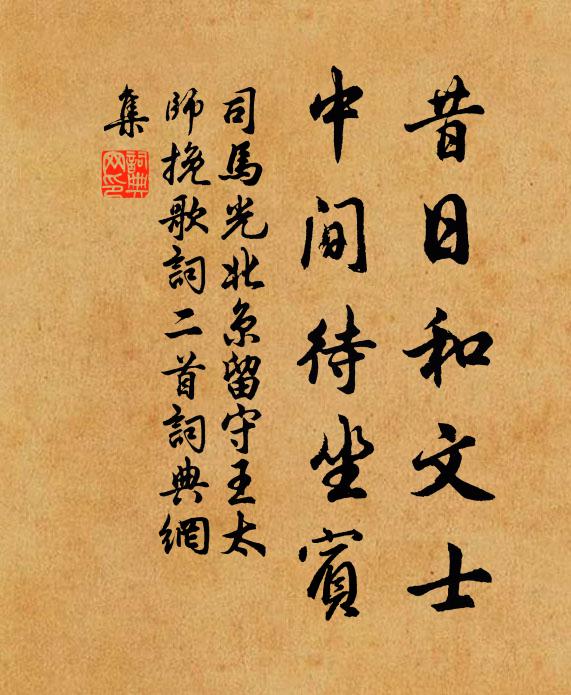 昔日和文士
中間待坐賓
司馬光北京留守王太
師挽歌詞二首詞典網
集
詞典
网印